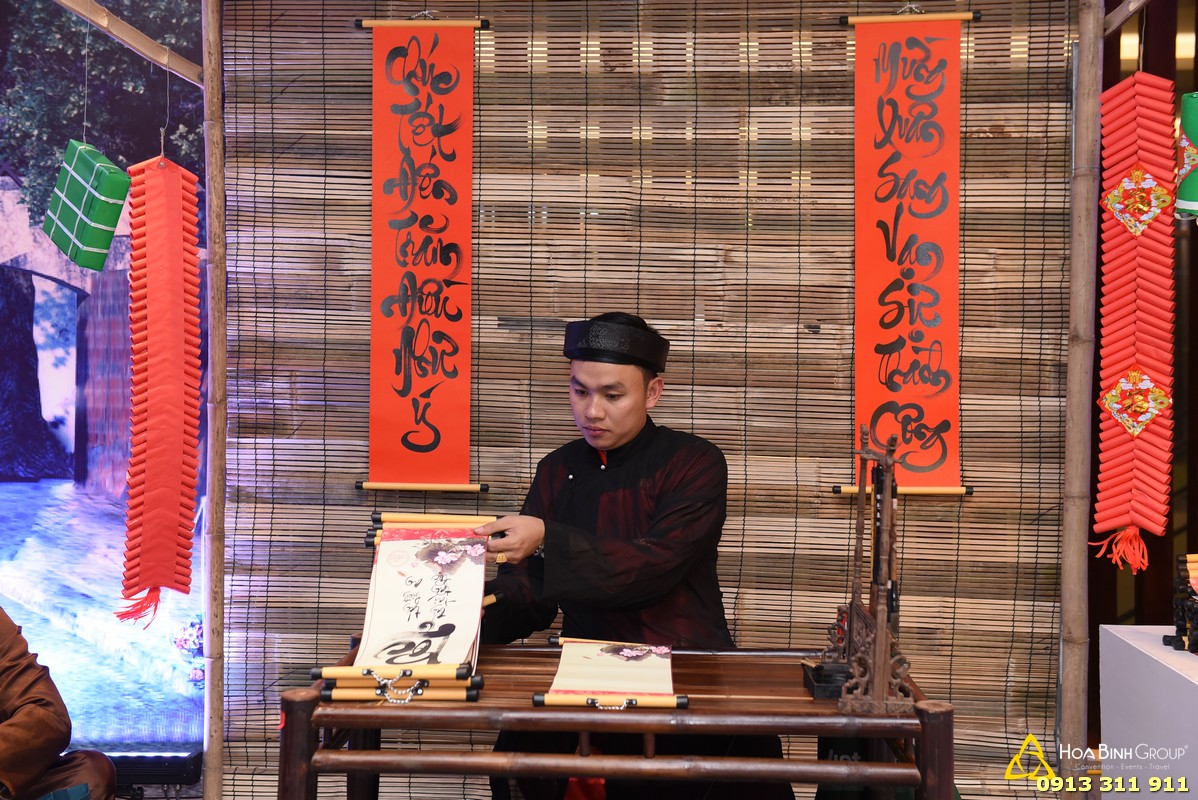 Chúc
Tết
Đến
Trăm
Điều
Như
Ý
Mừng
Xuân
Sang
Vạn
Sự
Thành
Công
HOA BINH GROUP®
Convention - Events - Travel
0913 311 911